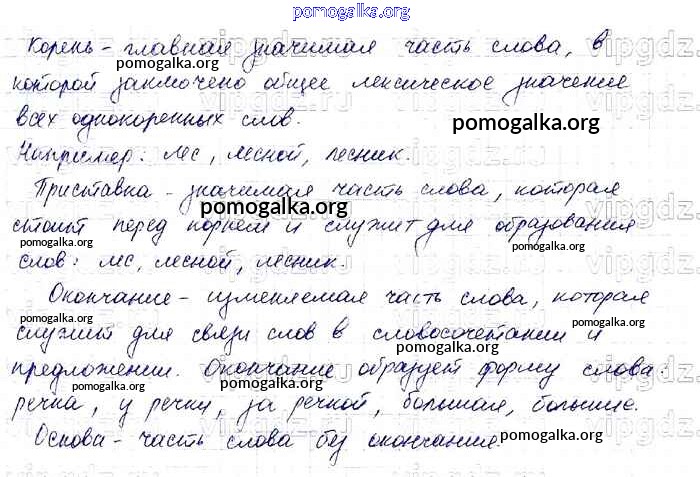 pomogalka.org
Корень - главная значимая часть слова, в
которой заключено общее лексическое значение
pomogalka.org
всех однокоренных слов.
pomogalka.org
Например: лес, лесной, лесник.
Приставка - значимая часть слова, которая
pomogalka.org
стоит перед корнем и служит для образования
pomogalka.org pomogalka.org
слов: лес, лесной, лесник.
Окончание - изменяемая часть слова, которая
pomogalka.org
служит для связи слов в словосочетании и
pomogalka.org
предложении. Окончание образует форму слова:
pomogalka.org pomogalka.org pomogalka.org
речка, у речки, за речкой, большая, большие.
Основа - часть слова без окончания.
pomogalka.org